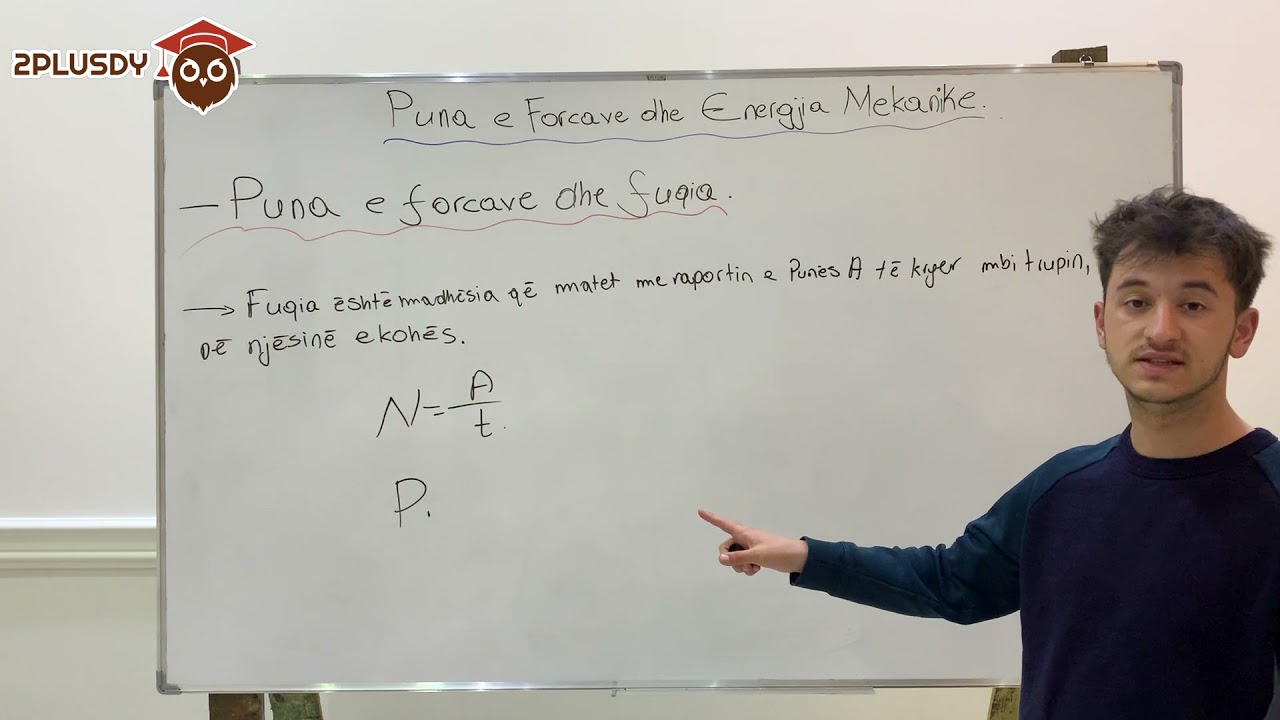 2PLUSDY
Puna e Forcave dhe Energjia Mekanike.
— Puna e forcave dhe fuqia.
→ Fuqia është madhësia që matet me raportin e Punës A të kryer mbi trupin,
në njësinë e kohës.
N = A/t.
P.